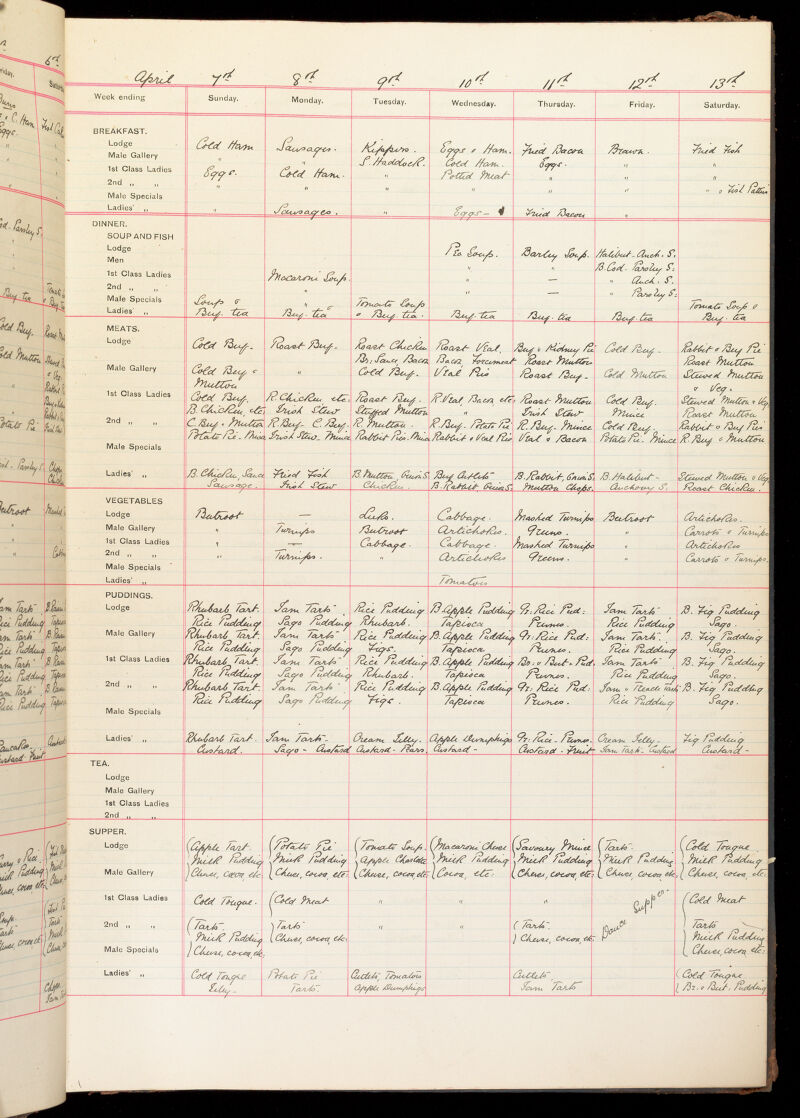 6th
Saturday
April 7th 8th 9th 10th 11th 12th 13th
Week ending Sunday. Monday. Tuesday. Wednesday. Thursday. Friday. Saturday.
BREAKFAST.
Lodge Cold Ham Sausages. Kippers. Eggs & Ham. Fried Bacon Brawn. Fried Fish
Male Gallery " " S. Haddock. Cold Ham. Eggs. " "
1st Class Ladies Eggs. Cold Ham. " Potted Meat " "
2nd " " " " " " " " " & Fish Patties
Male Specials
Ladies' " " Sausages. " Eggs - Fried Bacon "
DINNER.
SOUP AND FISH
Lodge Pea Soup. Barley Soup. Halibut. Anch. S.
Men " " B. Cod. Parsley S:
1st Class Ladies Macaroni Soup. " — " Anch. S.
2nd " " " " — " Parsley S:
Male Specials Soup & Tomato Soup Tomato Soup &
Ladies' " Beef tea Beef tea & Beef tea. Beef tea Beef tea Beef tea Beef tea
MEATS.
Lodge Cold Beef. Roast Beef. Roast Chicken Roast Veal. Beef & Kidney Pie Cold Beef. Rabbit & Beef Pie
Br. Sauce, Bacon Bacon Forcemeat Roast Mutton Roast Mutton
Male Gallery Cold Beef & " Cold Beef. Veal Pie Roast Beef. Cold Mutton Stewed Mutton
Mutton & Veg.
1st Class Ladies Cold Beef. R. Chicken etc. Roast Beef. R. Veal Bacon etc. Roast Mutton Cold Beef. Stewed Mutton & Veg
B. Chicken, etc. Irish Stew Stuffed Mutton " Irish Stew Mince Roast Mutton
2nd " " C. Beef. Mutton R. Beef. C. Beef. R. Mutton. R. Beef. Potato Pie R. Beef. Mince Cold Beef. Rabbit & Beef Pies
Potato Pie. Mince Irish Stew. Mince Rabbit Pie. Mince Rabbit & Veal Pie Veal & Bacon Potato Pie. Mince R. Beef & Mutton
Male Specials
Ladies' " B. Chicken, Sauce Fried Fish B. Mutton Onion S. Beef Cutlets B. Rabbit, Onion S. B. Halibut - Stewed Mutton & Veg
Sausage. Irish Stew Chicken. B. Rabbit Onion S. Mutton Chops. Anchovy S. Roast Chicken.
VEGETABLES
Lodge Beetroot — Leeks. Cabbage. Mashed Turnips Beetroot Artichokes.
Male Gallery " Turnips Beetroot Artichokes. Greens. " Carrots & Turnips
1st Class Ladies " — Cabbage. Cabbage. Mashed Turnips " Artichokes
2nd " " " Turnips. " Artichokes Greens. " Carrots & Turnips.
Male Specials
Ladies' " Tomatoes
PUDDINGS.
Lodge Rhubarb Tart. Jam Tarts Rice Pudding B. Apple Pudding Gr. Rice Pud: Jam Tarts B. Fig Pudding
Rice Pudding Sago Pudding Rhubarb. Tapioca Prunes. Rice Pudding Sago.
Male Gallery Rhubarb Tart. Jam Tarts Rice Pudding B. Apple Pudding Gr. Rice Pud: Jam Tarts. B. Fig Pudding
Rice Pudding Sago Pudding Figs. Tapioca Prunes. Rice Pudding Sago.
1st Class Ladies Rhubarb Tart. Jam Tarts Rice Pudding B. Apple Pudding Br. & But. Pud. Jam Tarts B. Fig Pudding
Rice Pudding Sago Pudding Rhubarb. Tapioca Prunes. Rice Pudding Sago.
2nd " " Rhubarb Tart. Jam Tarts Rice Pudding B. Apple Pudding Gr. Rice Pud. Jam & Treacle Tarts B. Fig Pudding
Rice Pudding Sago Pudding Figs. Tapioca Prunes. Rice Pudding Sago.
Male Specials
Ladies' " Rhubarb Tart. Jam Tarts. Cream Jelly. Apple Dumplings Gr. Rice. Prunes. Cream Jelly. Fig Pudding
Custard. Sago - Custard Custard - Pears. Custard - Custard - Fruit Jam Tarts. Custard Custard -
TEA.
Lodge
Male Gallery
1st Class Ladies
2nd " "
SUPPER.
Lodge Apple Tart Potato Pie Tomato Soup. Macaroni Cheese Savoury Mince Tarts. Cold Tongue
Milk Pudding Milk Pudding Apple Charlotte Milk Pudding Milk Pudding Milk Pudding Milk Pudding
Male Gallery Cheese, cocoa, etc. Cheese, cocoa, etc. Cheese, cocoa, etc. Cocoa, etc. Cheese, cocoa, etc. Cheese, cocoa, etc. Cheese, cocoa, etc.
1st Class Ladies Cold Tongue. Cold Meat " " " Dance Supper. Cold Meat
2nd " " Tarts Tarts " " Tarts. Tarts
Milk Pudding Cheese, cocoa, etc. Cheese, cocoa, etc. Milk Pudding
Male Specials Cheese, cocoa, etc. Cheese, cocoa, etc.
Ladies' " Cold Tongue Potato Pie Cutlets, Tomatoes Cutlets. Cold Tongue
Jelly. Tarts. Apple Dumplings Jam Tarts Br. & But. Pudding